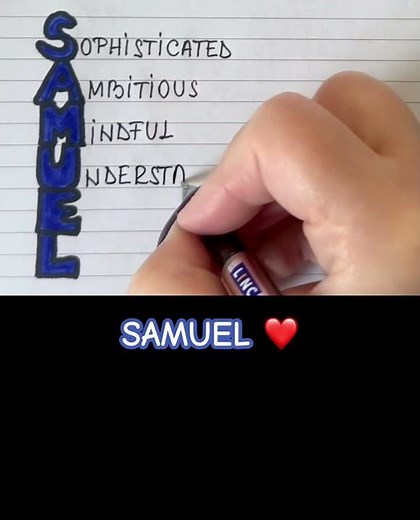 SOPHISTICATED
AMBITIOUS
MINDFUL
UNDERSTA
E
L
LINC
SAMUEL ❤️